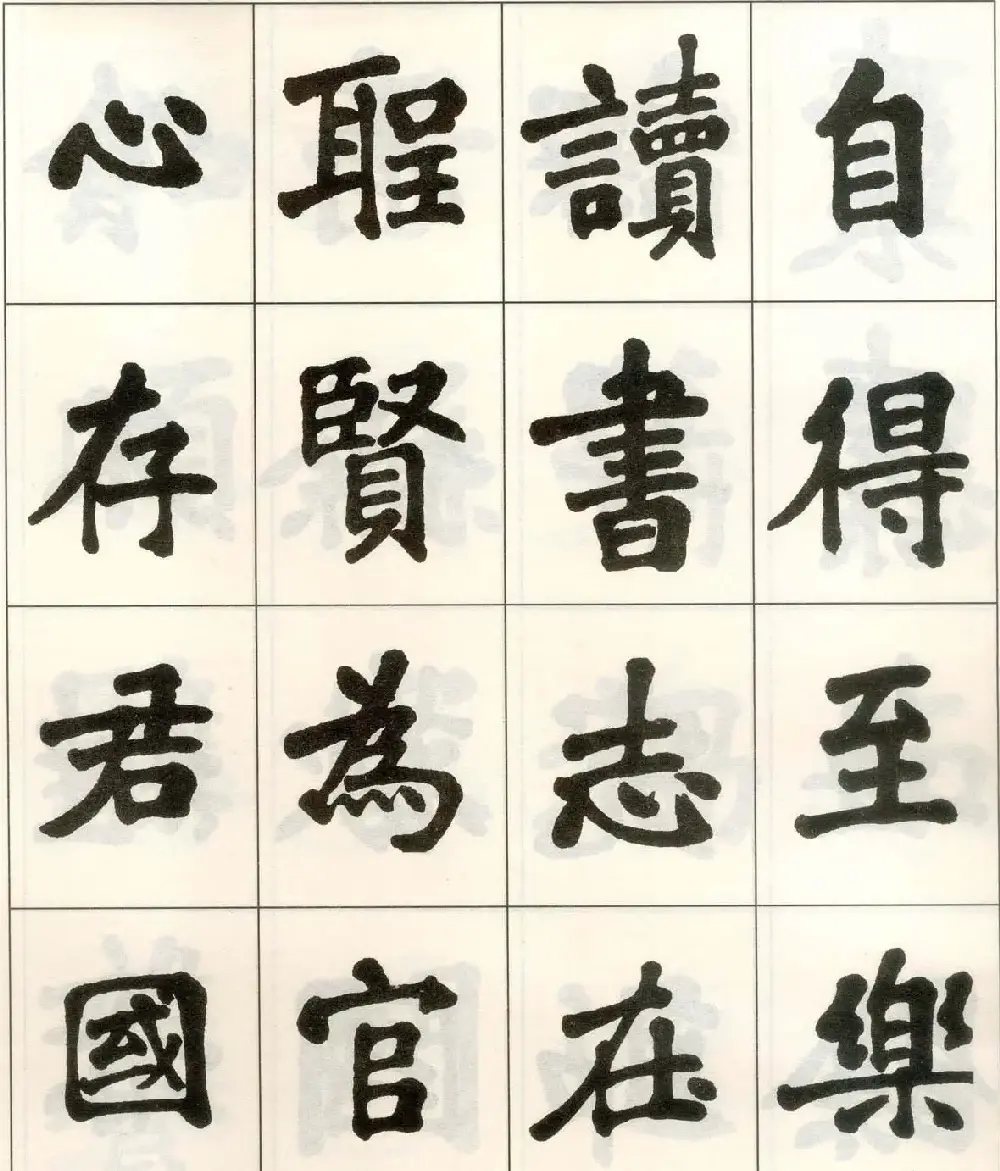 自得至樂
讀書志在
聖賢為官
心存君國